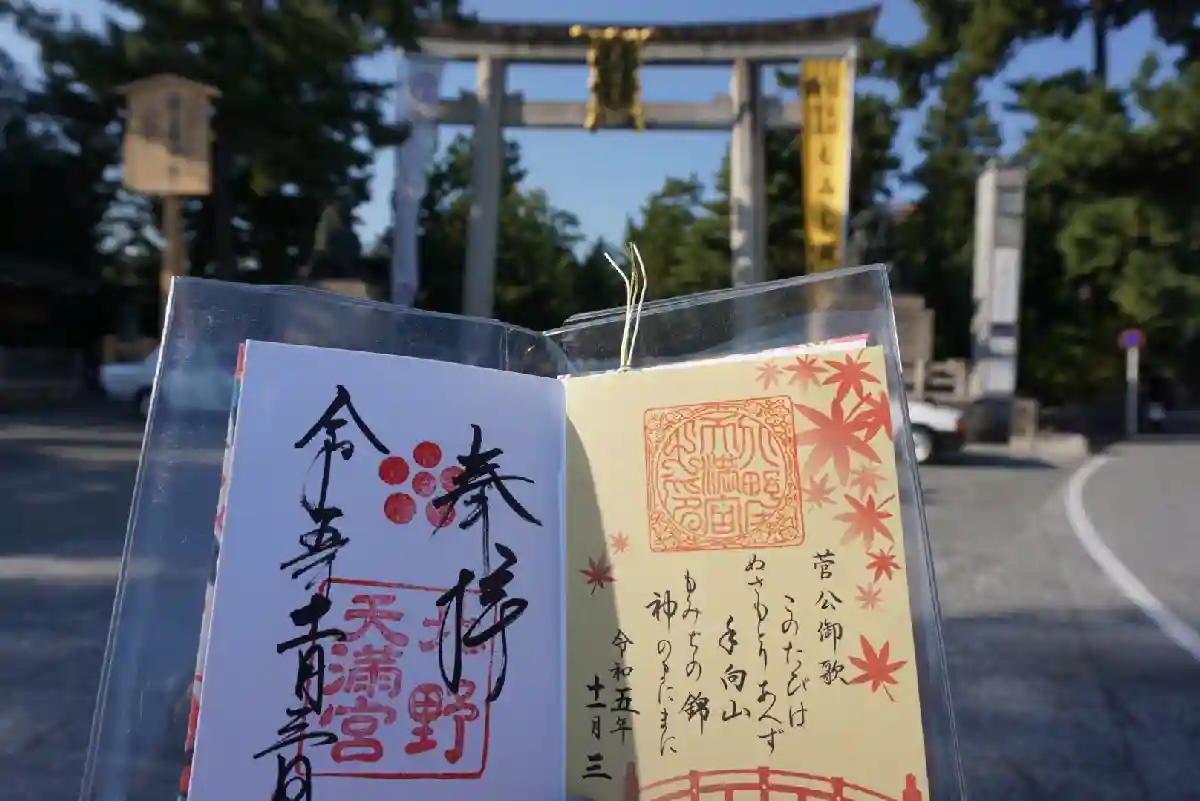 七五三
菅公御歌
このたびは
ぬさもとりあへず
手向山
もみぢの錦
神のまにまに
令和五年
十一月三
奉拝
北野
天満宮
令和五年十一月三日